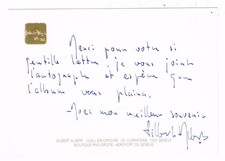 Merci pour votre si
gentille lettre, je vous joints
l'autographe et espère que
l'album vous plaira.
Avec mon meilleur souvenir
Gilbert Albert
GILBERT ALBERT JOAILLIER-ORFÈVRE CORRATERIE 1204 GENÈVE
BOUTIQUE AÉROPORT DE GENÈVE